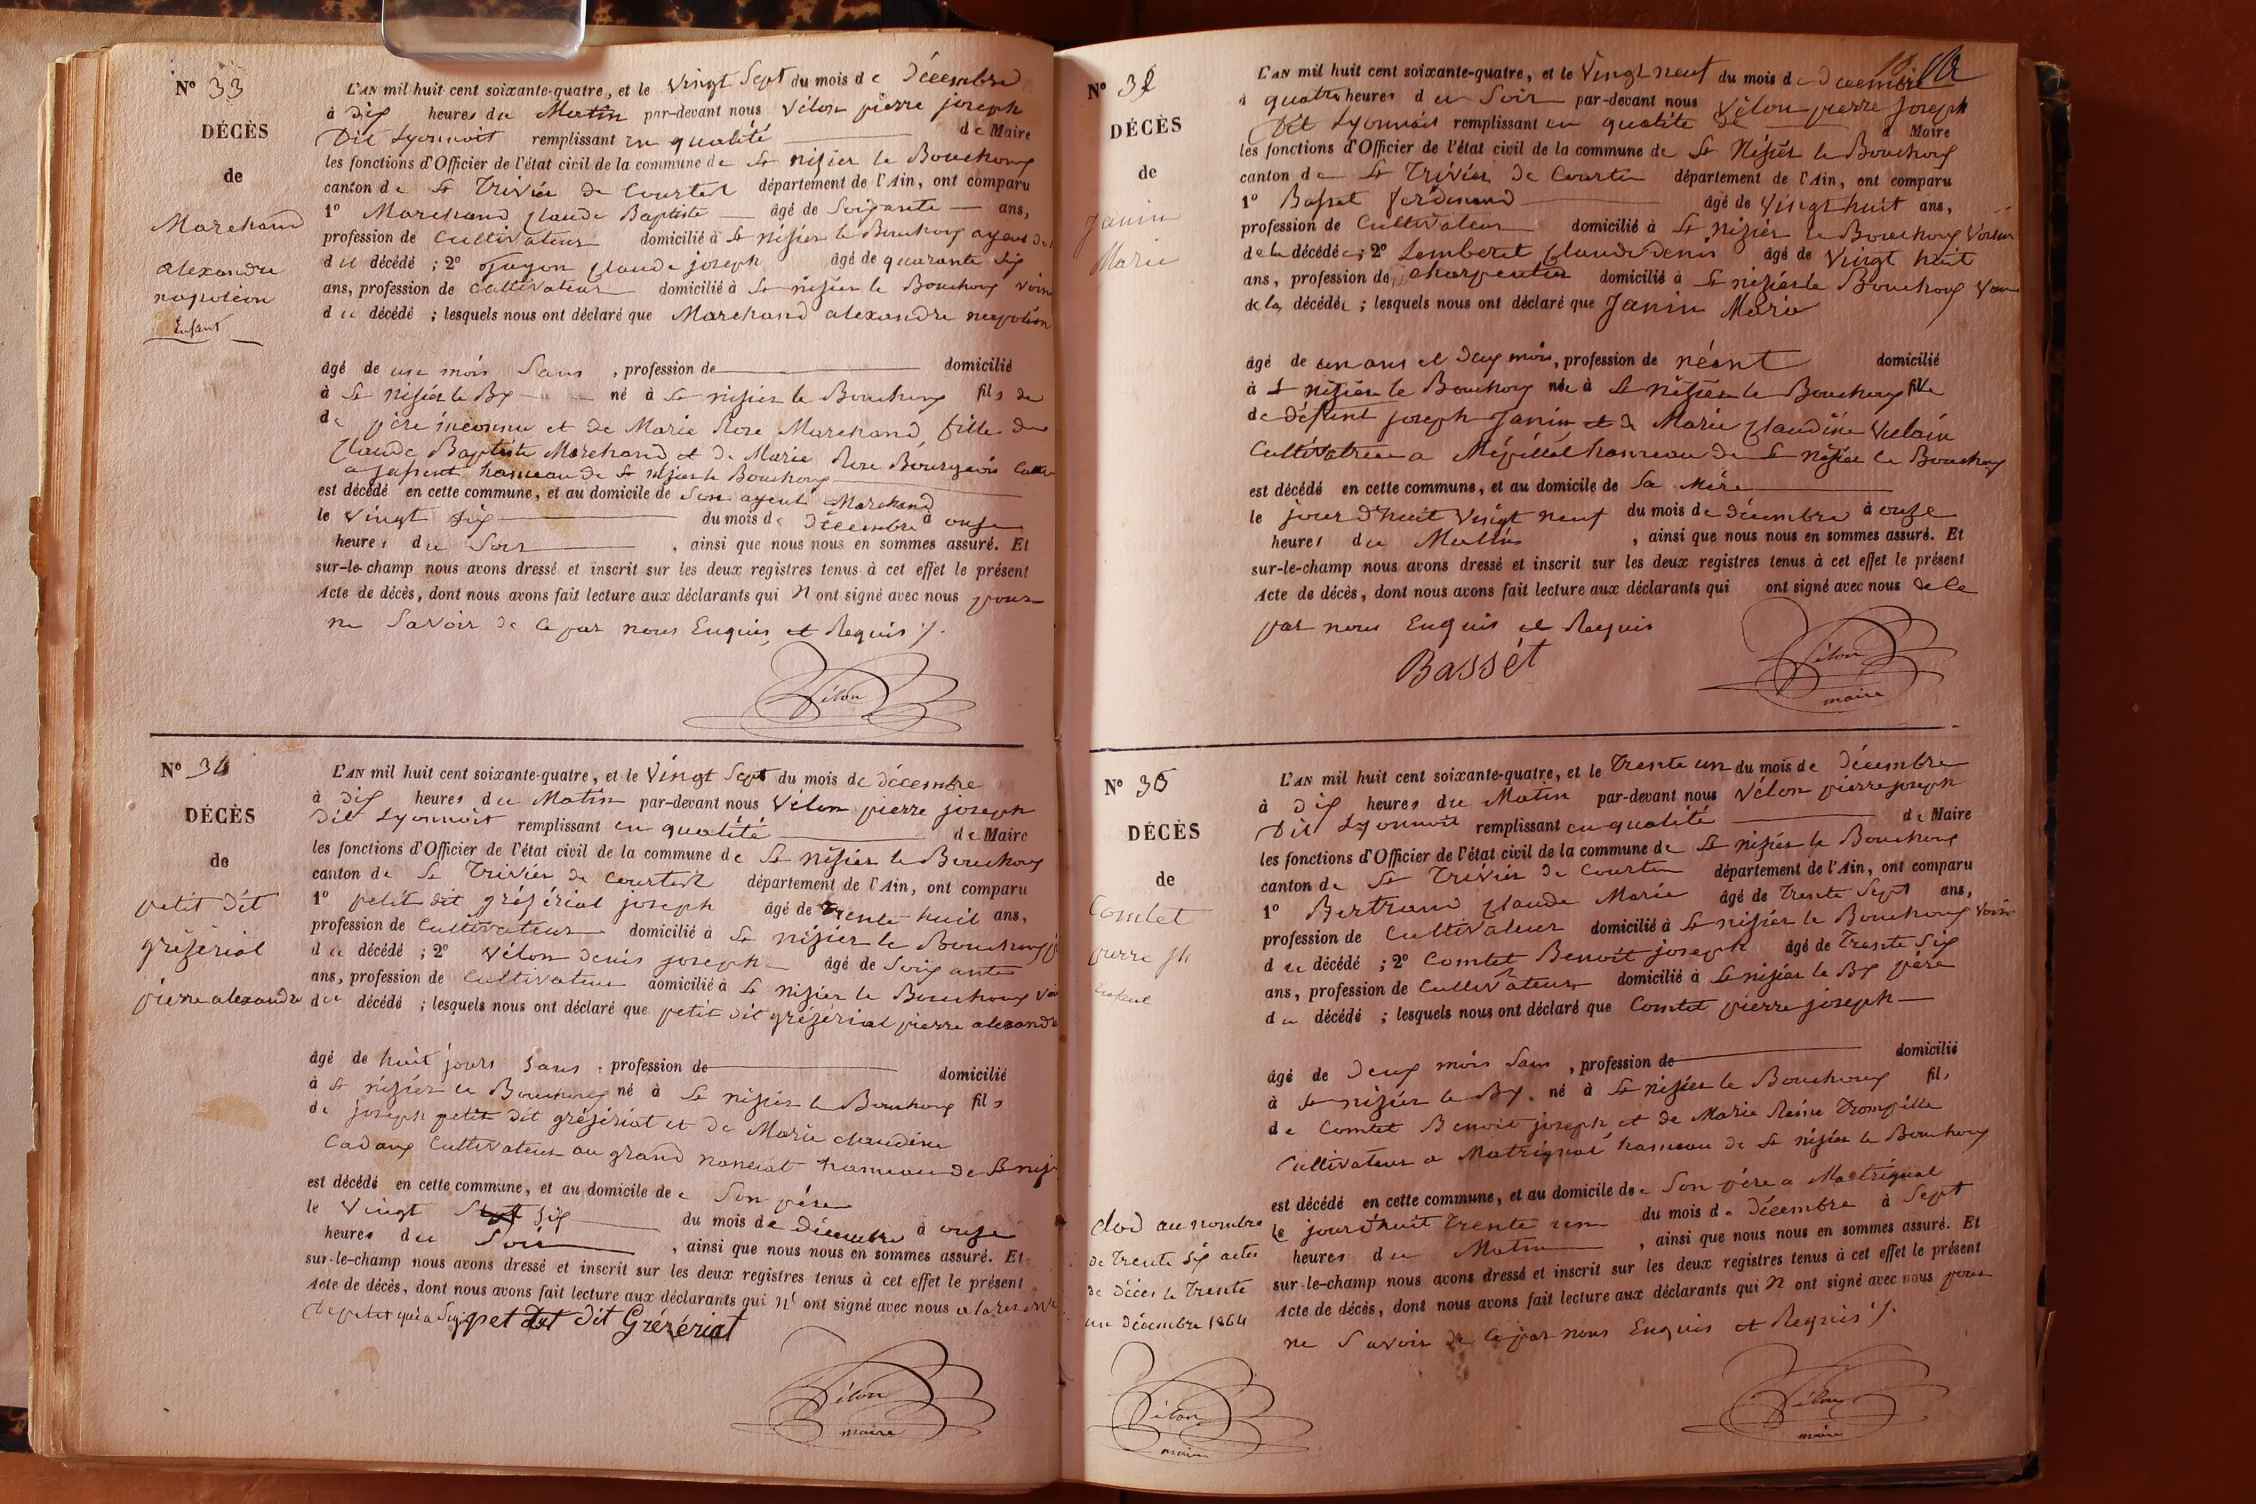 N° 33
DÉCÈS
de
Marchand
alexandre
napoléon
Enfant
L'AN mil huit cent soixante-quatre, et le vingt Sept du mois de Décembre
à dix heures du Matin par-devant nous Vélon pierre joseph
Dit Lyonnoit remplissant en qualité de Maire
les fonctions d'Officier de l'état civil de la commune de St nisier le Bouchoux
canton de St Trivier de Courtet département de l'Ain, ont comparu
1° Marchand Claude Baptiste âgé de Soixante ans,
profession de Cultivateur domicilié à St nisier le Bouchoux ayeul
du décédé ; 2° Guyon Claude joseph âgé de quarante six
ans, profession de Cultivateur domicilié à St nisier le Bouchoux voisin
du décédé ; lesquels nous ont déclaré que Marchand alexandre napoléon
âgé de un mois Sans , profession de domicilié
à St nisier le Bx né à St nisier le Bouchoux fils de
de père inconnu et de Marie Rose Marchand fille de
Claude Baptiste Marchand et de Marie Rose Bourgeois
a hameau de St nisier le Bouchoux
est décédé en cette commune, et au domicile de Son ayeul Marchand
le vingt six du mois de Décembre à onze
heures du Soir , ainsi que nous nous en sommes assuré. Et
sur-le-champ nous avons dressé et inscrit sur les deux registres tenus à cet effet le présent
Acte de décès, dont nous avons fait lecture aux déclarants qui n ont signé avec nous pour
ne Savoir de ce par nous Enquis et Requis ./.
Vélon
N° 34
DÉCÈS
de
petit dit
grézériat
pierre alexandre
L'AN mil huit cent soixante-quatre, et le Vingt Sept du mois de décembre
à Dix heures du Matin par-devant nous Vélon pierre joseph
Dit Lyonnoit remplissant en qualité de Maire
les fonctions d'Officier de l'état civil de la commune de St nisier le Bouchoux
canton de St Trivier de Courtet département de l'Ain, ont comparu
1° petit dit grézériat joseph âgé de trente huit ans,
profession de Cultivateur domicilié à St nisier le Bouchoux
du décédé ; 2° Vélon denis joseph âgé de Soixante
ans, profession de Cultivateur domicilié à St nisier le Bouchoux
du décédé ; lesquels nous ont déclaré que petit dit grézériat pierre alexandre
âgé de huit jours Sans , profession de domicilié
à St nisier le Bouchoux né à St nisier le Bouchoux fils
de joseph petit dit grézériat et de Marie claudine
Cadoux Cultivateur au grand nonciat hameau de St
est décédé en cette commune, et au domicile de Son père
le Vingt Six du mois de décembre à onze
heures du Soir , ainsi que nous nous en sommes assuré. Et
sur-le-champ nous avons dressé et inscrit sur les deux registres tenus à cet effet le présent
Acte de décès, dont nous avons fait lecture aux déclarants qui n' ont signé avec nous
De petit qui a Signé petit dit Grézériat
Vélon
maire
N° 35
DÉCÈS
de
Janin
Marie
L'AN mil huit cent soixante-quatre, et le Vingt neuf du mois de Décembre
à quatre heures du Soir par-devant nous Vélon pierre joseph
Dit Lyonnois remplissant en qualité de Maire
les fonctions d'Officier de l'état civil de la commune de St Nisier le Bouchoux
canton de St Trivier de Courte département de l'Ain, ont comparu
1° Basset ferdinand âgé de Vingt huit ans,
profession de Cultivateur domicilié à St nisier le Bouchoux Voisin
de la décédée ; 2° Lemberet Claude denis âgé de Vingt huit
ans, profession de charpentier domicilié à St nisier le Bouchoux
de la décédée ; lesquels nous ont déclaré que Janin Marie
âgé de un ans et deux mois , profession de néant domicilié
à St nisier le Bouchoux née à St nisier le Bouchoux fille
de défunt joseph Janin et de Marie Claudine Vulain
Cultivatrice a Mépillat hameau de St nisier le Bouchoux
est décédé en cette commune, et au domicile de Sa Mère
le jour d'huit Vingt neuf du mois de décembre à onze
heures du Matin , ainsi que nous nous en sommes assuré. Et
sur-le-champ nous avons dressé et inscrit sur les deux registres tenus à cet effet le présent
Acte de décès, dont nous avons fait lecture aux déclarants qui ont signé avec nous de ce
par nous Enquis et Requis
Bassét
Vélon
maire
N° 36
DÉCÈS
de
Comtet
pierre jh
enfant
L'AN mil huit cent soixante-quatre, et le Trente un du mois de décembre
à Dix heures du Matin par-devant nous Vélon pierre joseph
Dit Lyonnoit remplissant en qualité de Maire
les fonctions d'Officier de l'état civil de la commune de St nisier le Bouchoux
canton de St Trivier de Courte département de l'Ain, ont comparu
1° Bertrand Claude Marie âgé de Trente Sept ans,
profession de Cultivateur domicilié à St nisier le Bouchoux Voisin
du décédé ; 2° Comtet Benoit joseph âgé de Trente Six
ans, profession de Cultivateur domicilié à St nisier le Bx père
du décédé ; lesquels nous ont déclaré que Comtet pierre joseph
âgé de Deux mois Sans , profession de domicilié
à St nisier le Bx né à St nisier le Bouchoux fils
de Comtet Benoit joseph et de Marie Reine Trompille
Cultivateur a Matrignat hameau de St nisier le Bouchoux
est décédé en cette commune, et au domicile de Son père a Matrignat
le jourd'huit trente un du mois de décembre à Sept
heures du Matin , ainsi que nous nous en sommes assuré. Et
sur-le-champ nous avons dressé et inscrit sur les deux registres tenus à cet effet le présent
Acte de décès, dont nous avons fait lecture aux déclarants qui n ont signé avec nous pour
ne Savoir de ce par nous Enquis et Requis ./.
Vélon
maire
clod au nombre
de Trente Six actes
de Décès le Trente
un Décembre 1864
Vélon
maire